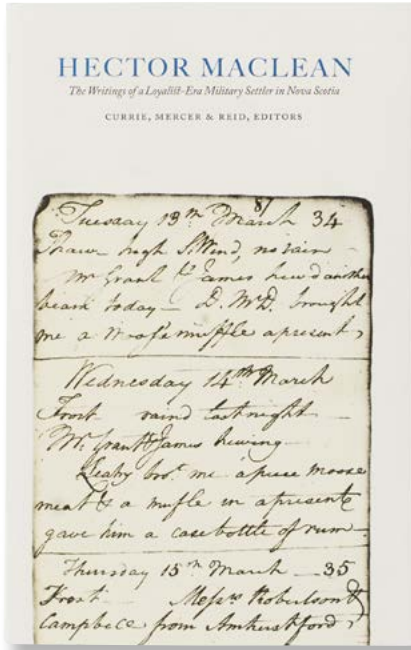 HECTOR MACLEAN
The Writings of a Loyalist-Era Military Settler in Nova Scotia
CURRIE, MERCER & REID, EDITORS
87
Tuesday 13th March 34
Thaw high S. Wind, no rain
Mr Grant & James hew'd another
beam today – D. McD. brought
me a moose muffle a present,
Wednesday 14th March
Frost raind last night
Mr. Grant & James hewing
Leahy brot. me a piece moose
meat & a mufle in a present
gave him a case bottle of rum –
Thursday 15th March 35
Frost Messrs Robertson &
Campbell from Amherst ford,